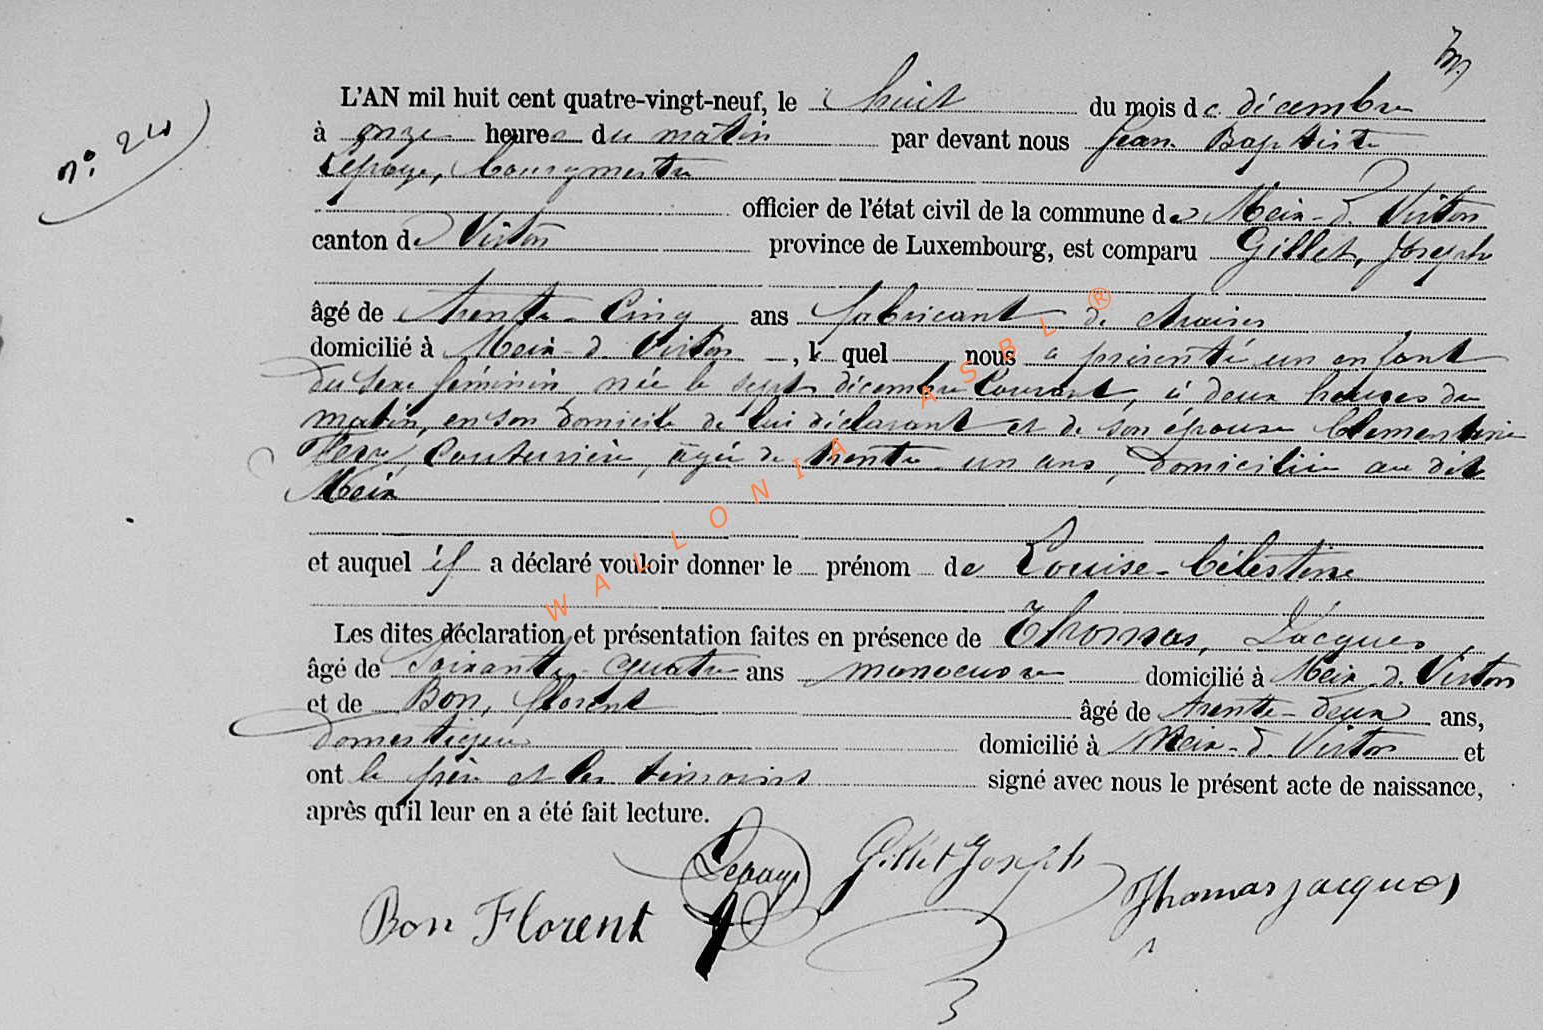 n° 24
L'AN mil huit cent quatre-vingt-neuf, le huit du mois de décembre
à onze heures du matin par devant nous Jean Baptiste
Lepage, bourgmestre
officier de l'état civil de la commune de Meix-d. Virton
canton de Virton province de Luxembourg, est comparu Gillet, Joseph
âgé de trente-cinq ans fabricant de chaises
domicilié à Meix-d. Virton, lequel nous a présenté un enfant
du sexe féminin, née le sept décembre courant, à deux heures du
matin, en son domicile de lui déclarant et de son épouse Clémentine
couturière, âgée de trente un ans, domiciliée au dit
Meix
et auquel il a déclaré vouloir donner le prénom de Louise-Célestine
Les dites déclaration et présentation faites en présence de Thomas, Jacques,
âgé de soixante-quatre ans manoeuvre domicilié à Meix-d. Virton
et de Bon, Florent âgé de trente-deux ans,
domestique domicilié à Meix-d. Virton et
ont le père et les témoins signé avec nous le présent acte de naissance,
après qu'il leur en a été fait lecture.
Lepage Gillet Joseph Thomas jacques
Bon Florent
WALLONIA ASBL ®